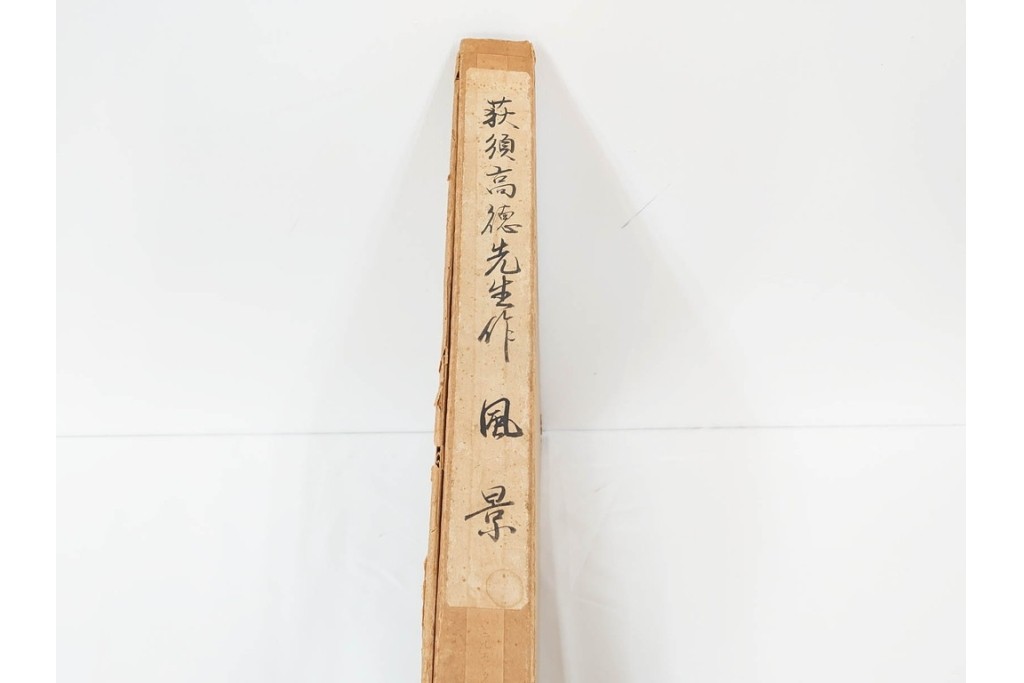 荻須高徳先生作 風景